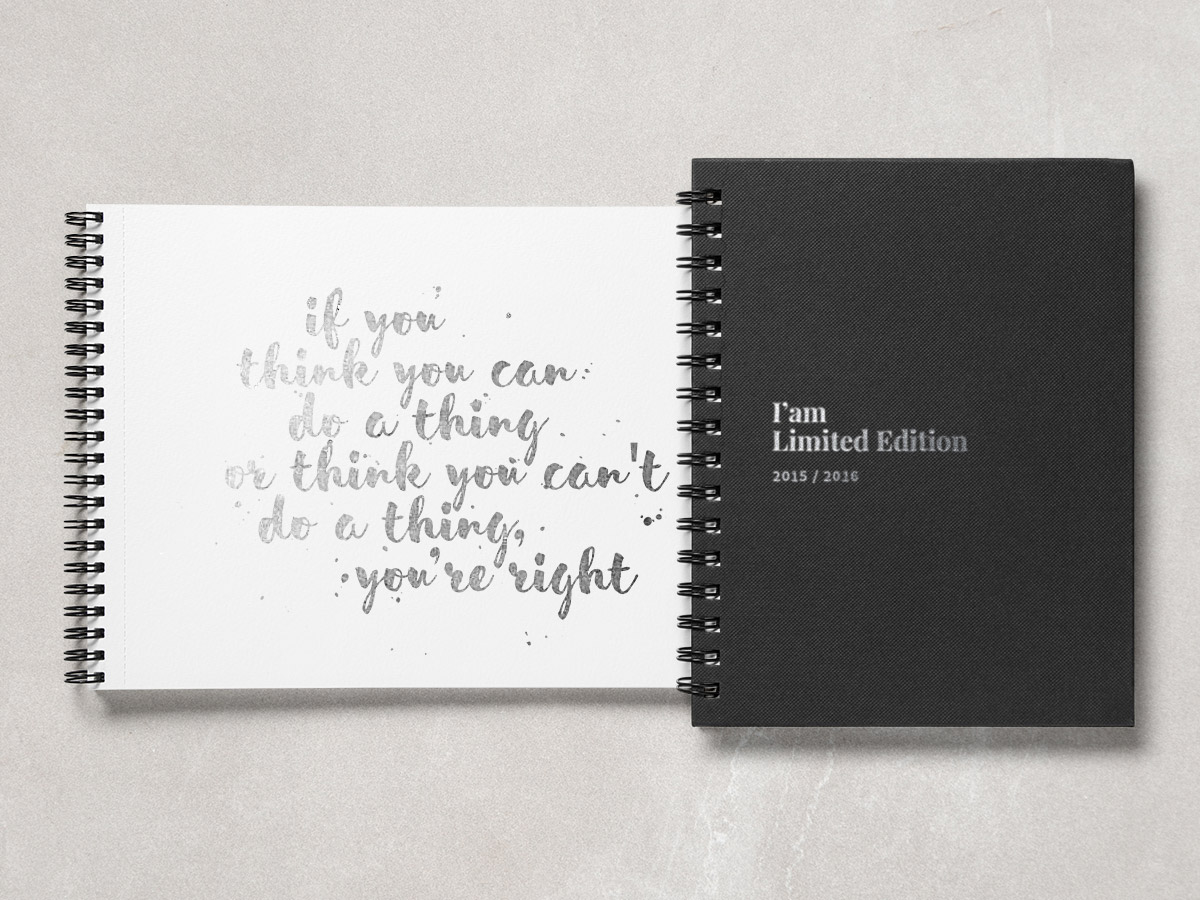 if you
think you can
do a thing
or think you can't
do a thing,
you're right
I'am
Limited Edition
2015 / 2016